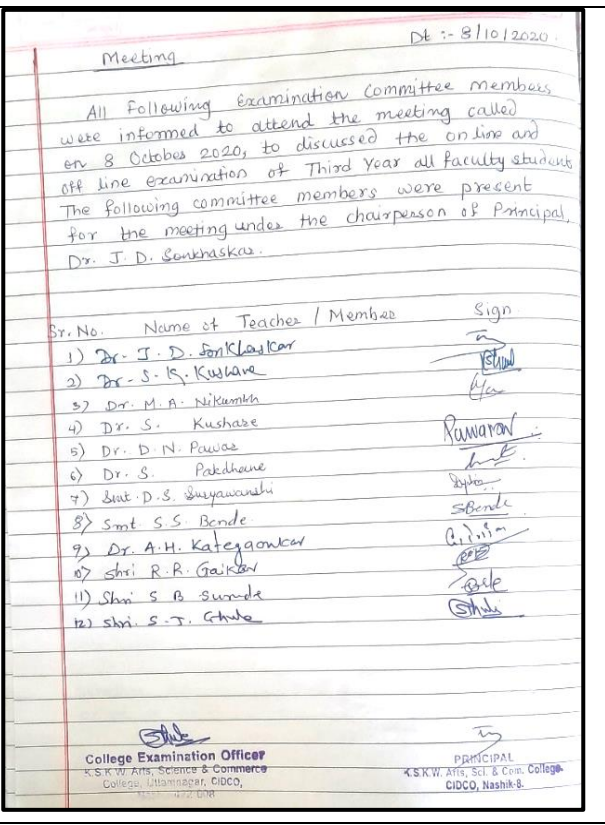 Dt :- 8/10/2020.
Meeting
All following Examination Committee members
were informed to attend the meeting called
on 8 October 2020, to discussed the online and
off line examination of Third Year all faculty students
The following committee members were present
for the meeting under the chairperson of Principal,
Dr. J. D. Sonkhaskar.
Sr. No. Name of Teacher / Member Sign
1) Dr. J. D. Sonkhaskar
2) Dr. S. K. Kushare
3) Dr. M. A. Nikumbh
4) Dr. S. Kushare
5) Dr. D. N. Pawar Pawaron
6) Dr. S. Pakdhane
7) Smt. D. S. Suryawanshi
8) Smt S. S. Bende SBende
9) Dr. A. H. Kategaonkar
10) Shri R. R. Gaikar
11) Shri S B Surude
12) Shri. S. T. Ghule
College Examination Officer
K.S.K.W. Arts, Science & Commerce
College, Uttamnagar, CIDCO,
PRINCIPAL
K.S.K.W. Arts, Sci. & Com. College.
CIDCO, Nashik-8.